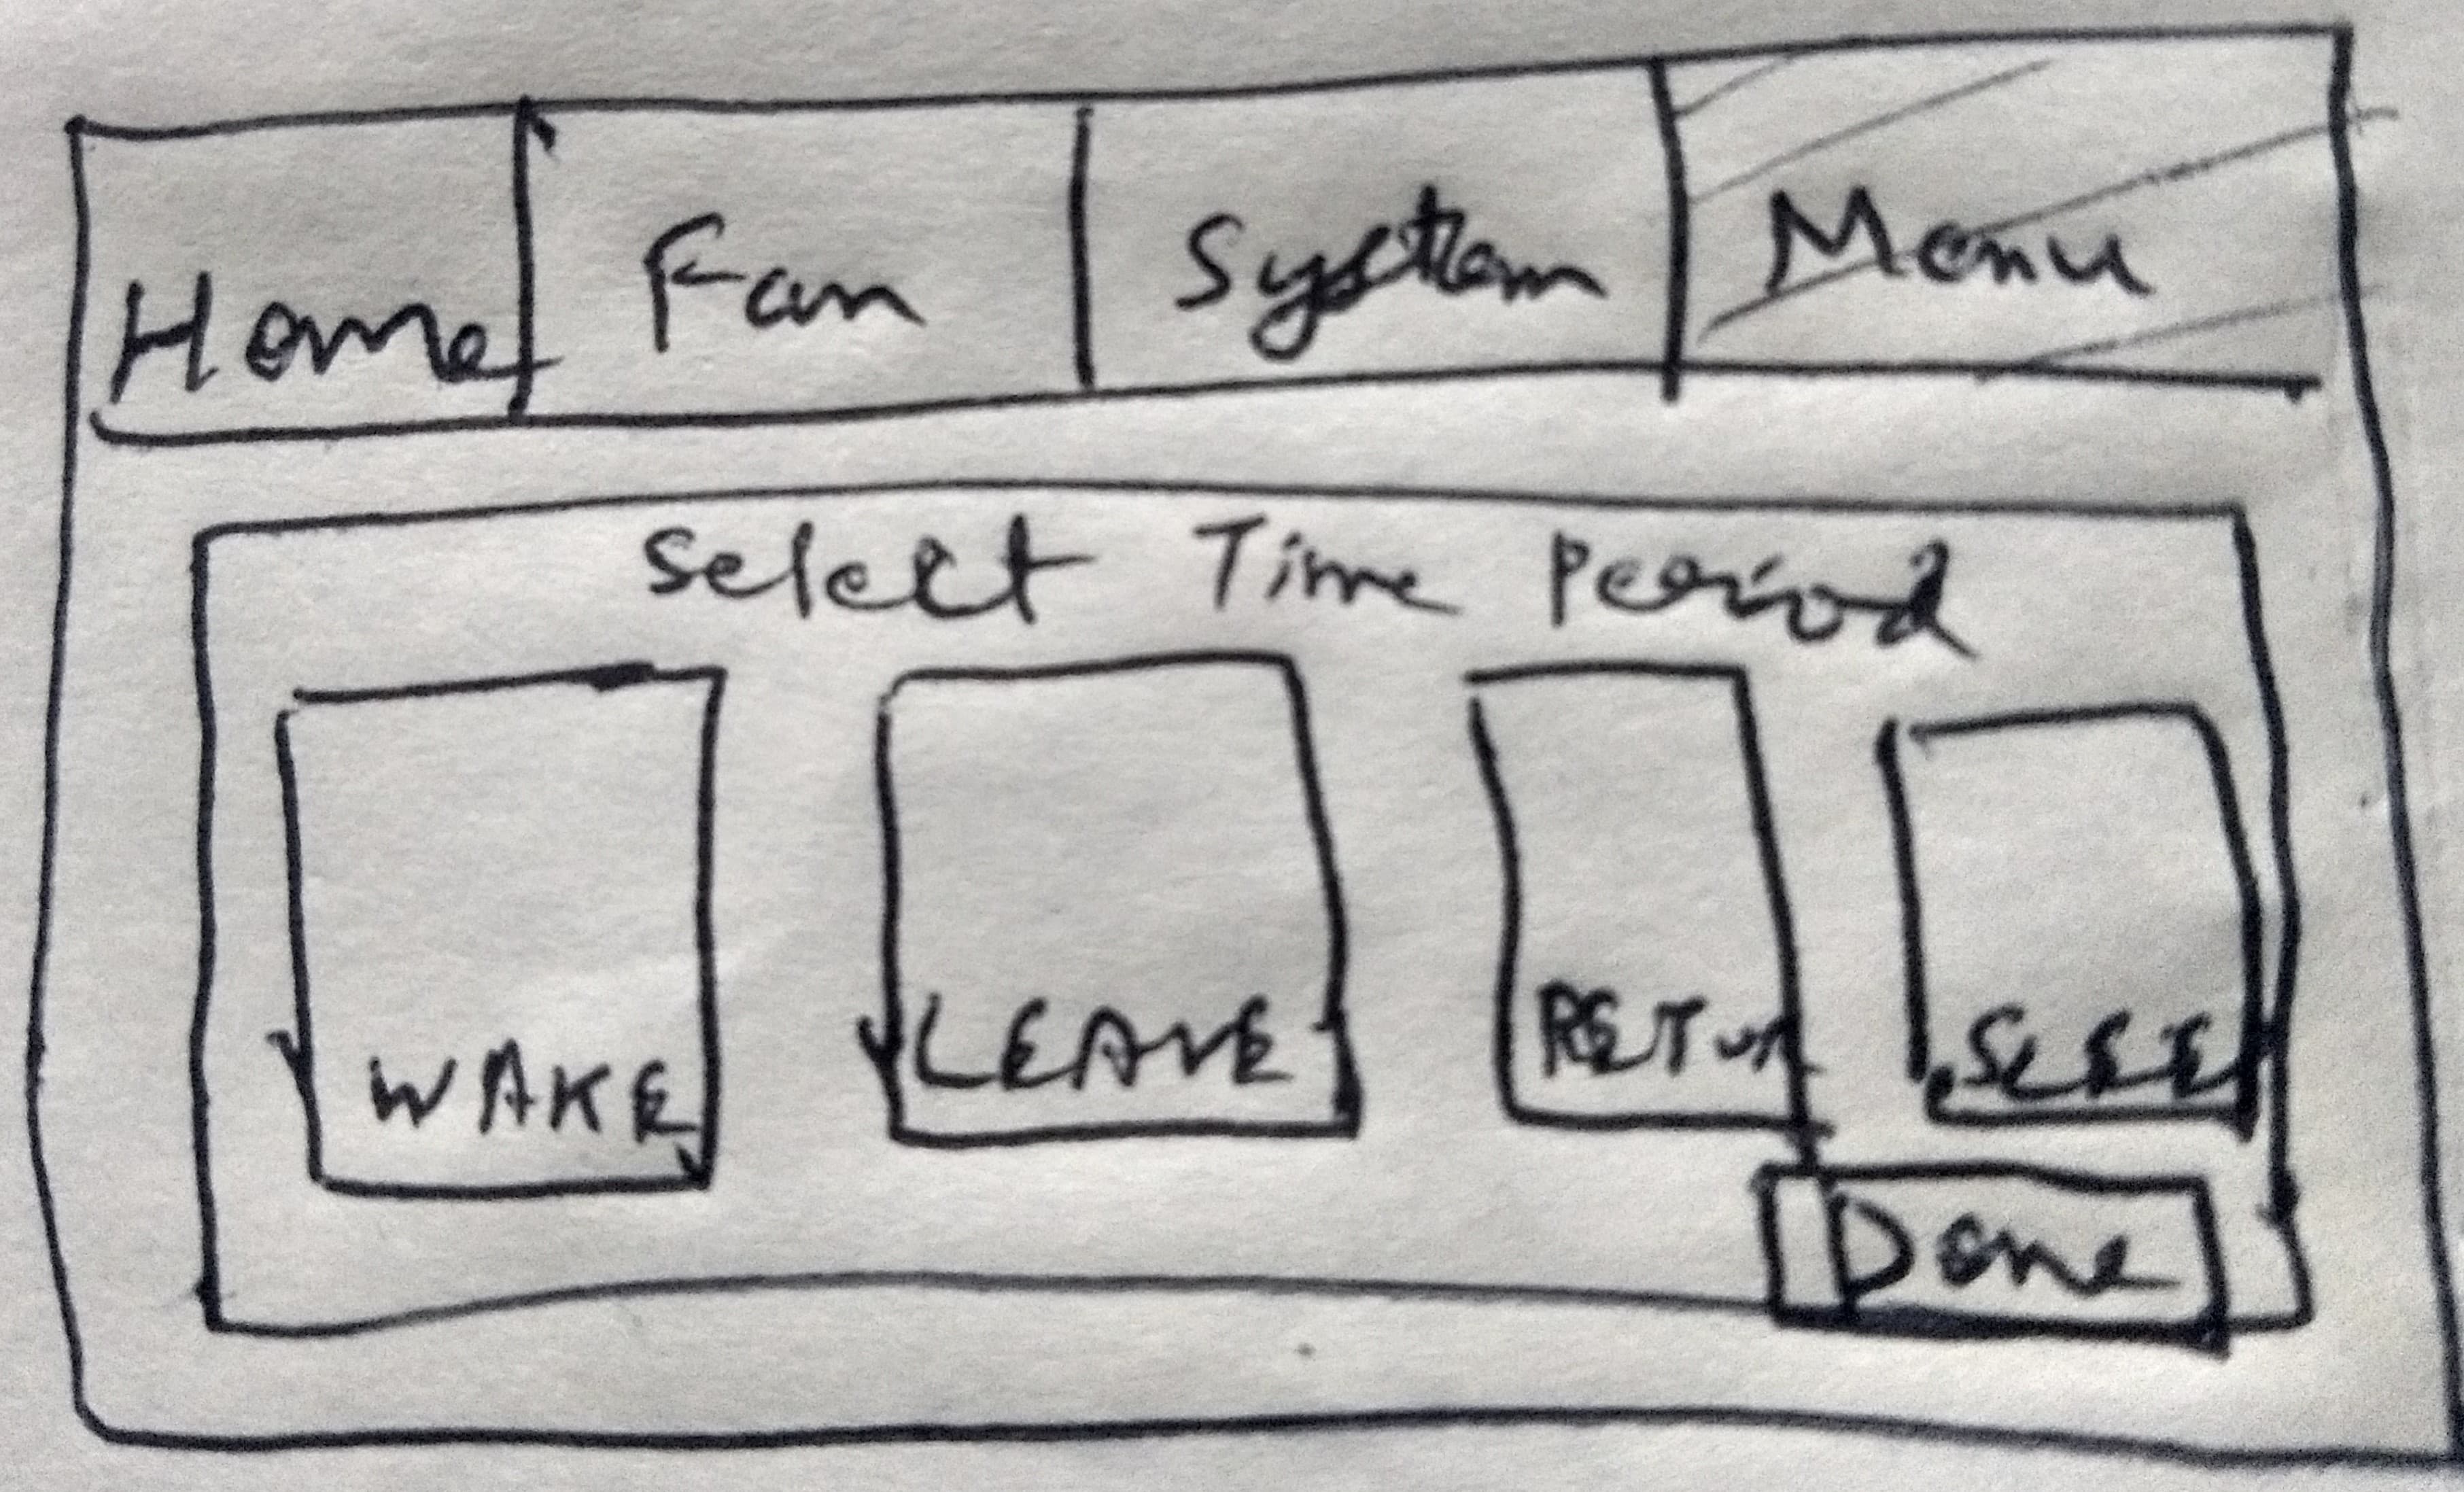 Home Fan System Menu
Select Time Period
WAKE LEAVE RETUR
Done